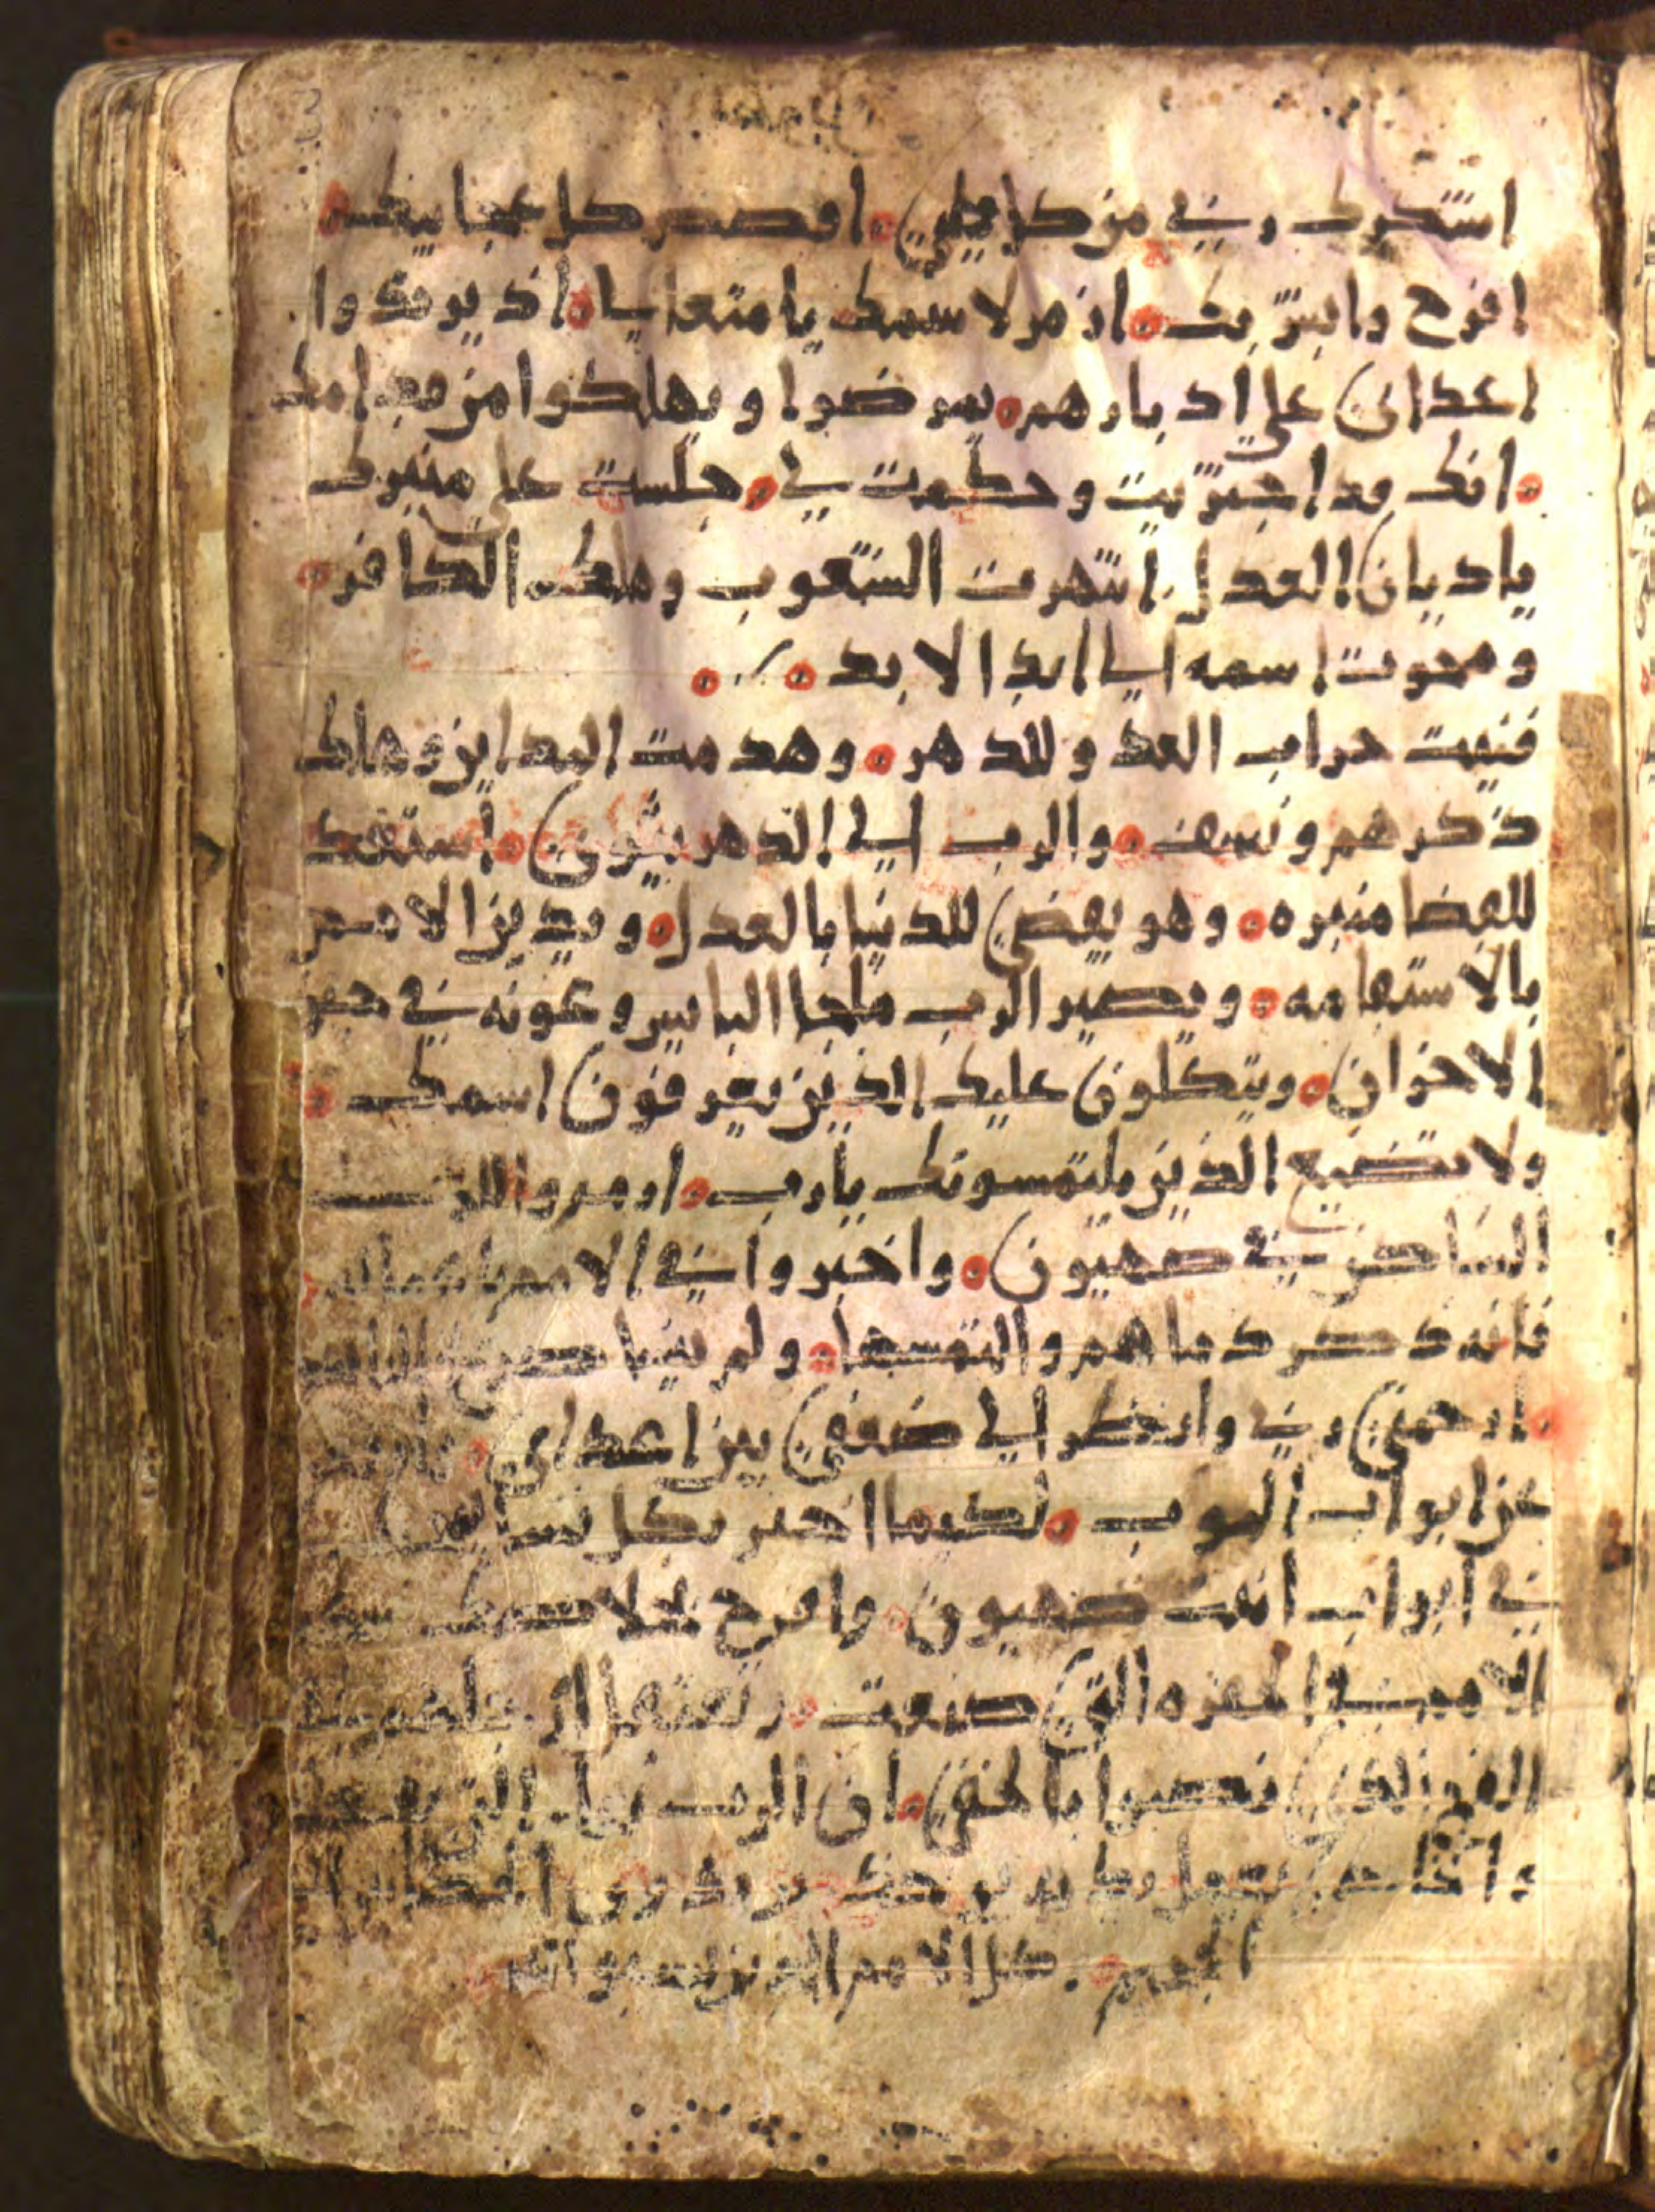 اشكرك ربي من كل قلبي ۰ اقصص كل عجايبك ۰
افرح وابشر بك ۰ ازمر لاسمك يا متعاليا ۰ اذ يرتدوا
اعداي على ادبارهم ۰ يمرضوا ويهلكوا من قدامك
۰ انك قد اجتزيت وحكمت لي ۰ جلست على منبرك
يا ديان العدل ۰ انتهرت الشعوب وهلك الكافر ۰
ومحوت اسمه الى ابد الابد ۰
فنيت حراب العدو للدهر ۰ وهدمت المداين وهلك
ذكرهم ونسف ۰ والرب الى الدهر يثوي ۰ استعد
للقضا منبره ۰ وهو يقضي للدنيا بالعدل ۰ ويدين الامم
بالاستقامه ۰ ويصير الرب ملجا البايس وعونه في حين
الاحزان ۰ ويتكلون عليك الذين يعرفون اسمك ۰
ولا تضيع الذين يلتمسونك يا رب ۰ ازمروا للرب
الساكن في صهيون ۰ واخبروا في الامم باعماله
فانه ذكر دماهم والتمسها ۰ ولم ينسا
۰ ارحمني ربي وانظر الى ضعفي بين اعداي ۰
عن ابواب الموت ۰ لكيما اخبر بكل
في ابواب ابنت صهيون ۰ وافرح بخلاصك
الامم في الحفره التي صنعت ۰
الفخ الذي نصبوا بالخفي ۰ ان الرب
الجحيم ۰ كل الامم الذين نسوا الله